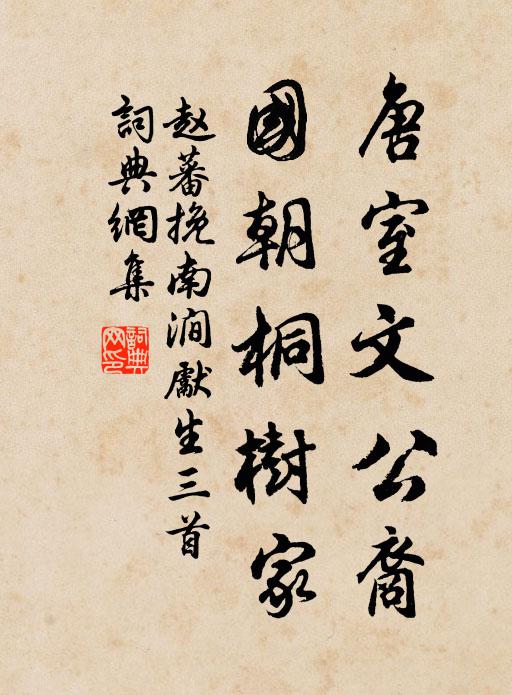 唐室文公裔
國朝桐樹家
赵蕃挽南澗獻生三首
詞典網集
詞典網印